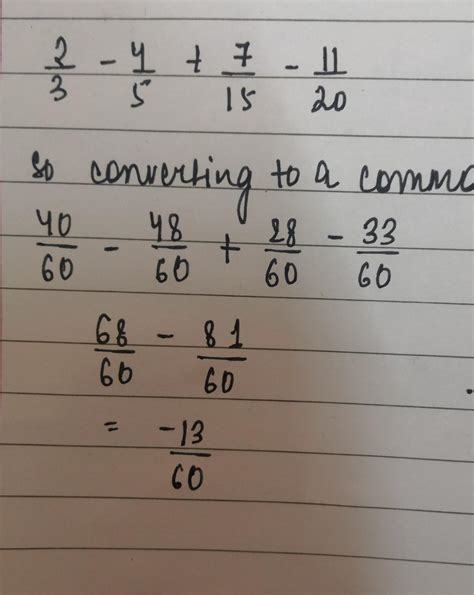 2/3 - 4/5 + 7/15 - 11/20
so converting to a
40/60 - 48/60 + 28/60 - 33/60
68/60 - 81/60
= -13/60